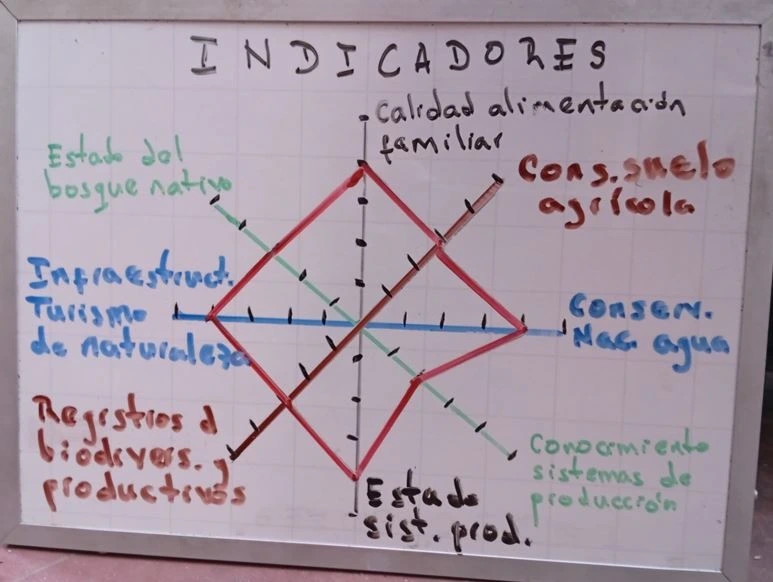 INDICADORES
Calidad alimentación
familiar
Estado del
bosque nativo
Cons. suelo
agrícola
Infraestruct.
Turismo
de naturaleza
Conserv.
Nac. agua
Registros d
biodivers. y
productivos
Conocimiento
sistemas de
producción
Estado
sist. prod.